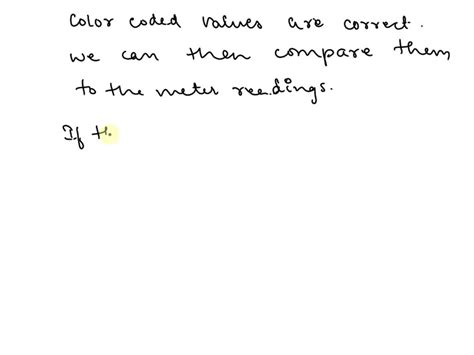 Color coded values are correct.
we can then compare them
to the meter readings.
If t